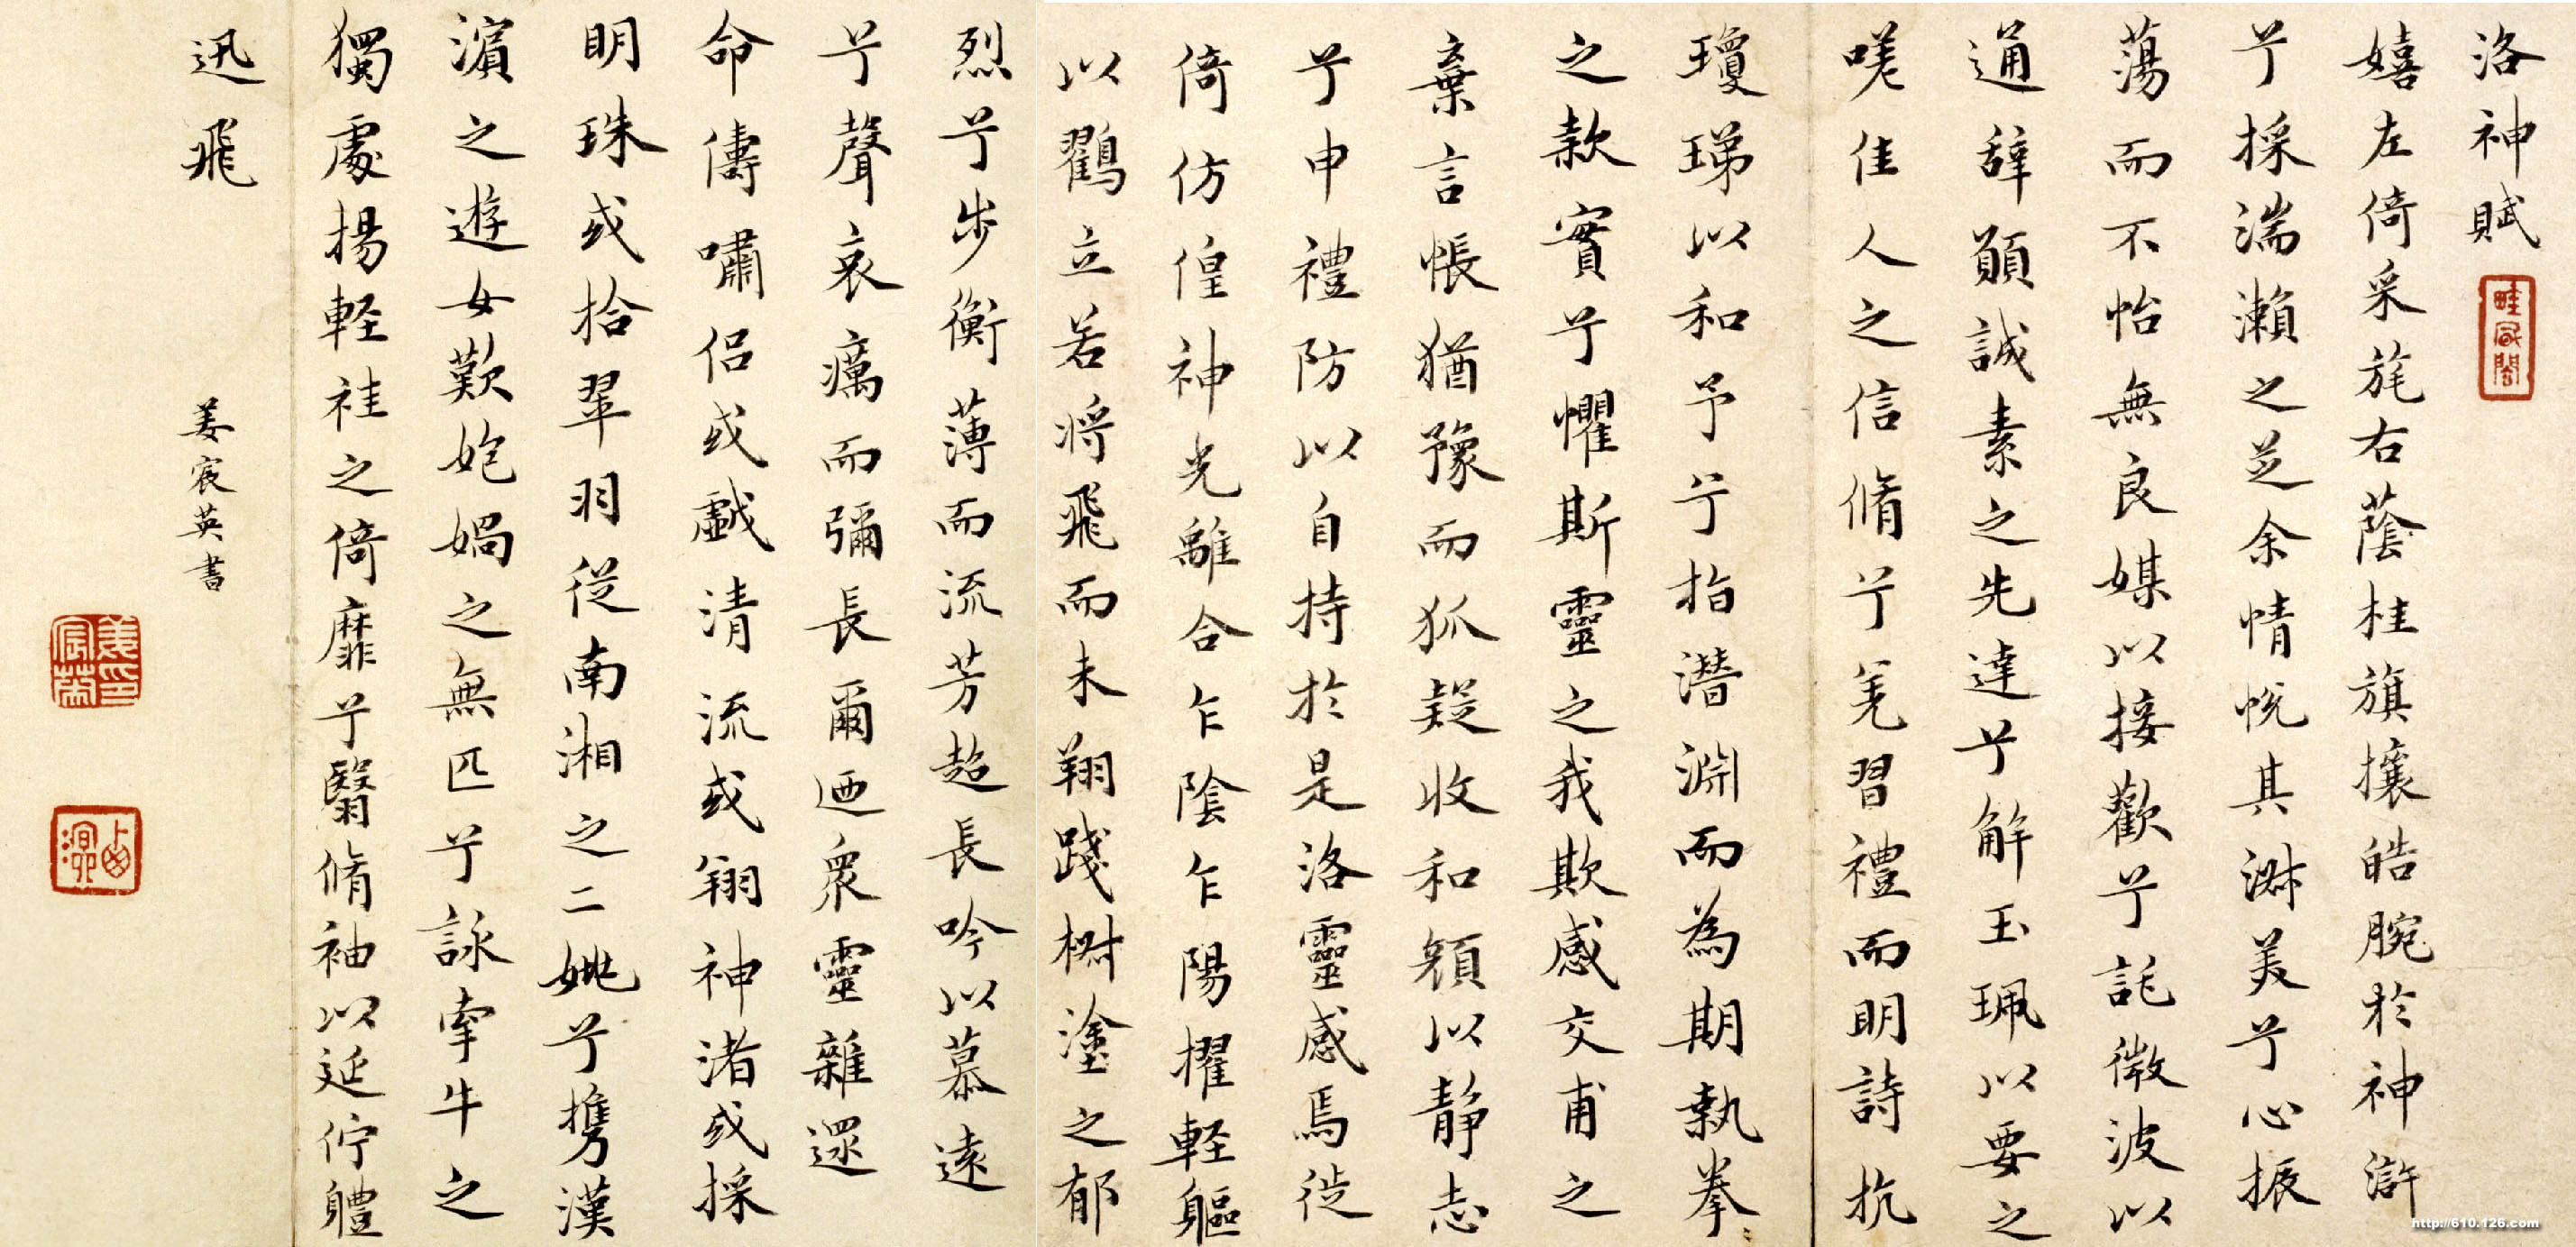 洛神賦
嬉左倚采旄右蔭桂旗攘皓腕於神滸
兮採湍瀬之芝余情悅其淑美兮心振
蕩而不怡無良媒以接歡兮託微波以
通辭願誠素之先達兮解玉珮以要之
嗟佳人之信脩兮羌習禮而明詩抗
瓊珶以和予兮指潛淵而為期執拳〻
之款實兮懼斯靈之我欺感交甫之
棄言悵猶豫而狐疑收和顏以靜志
兮申禮防以自持於是洛靈感焉徙
倚仿偟神光離合乍陰乍陽擢軽軀
以鸛立若將飛而未翔踐椒塗之郁
烈兮步衡薄而流芳超長吟以慕遠
兮聲哀癘而彌長爾迺衆靈雜遝
命儔嘯侶或戲清流或翔神渚或採
明珠或拾翠羽從南湘之二姚兮攜漢
濱之遊女歎匏媧之無匹兮詠牽牛之
獨處揚軽袿之倚靡兮翳脩袖以延佇軆
迅飛
姜宸英書
姜宸英印
http://610.126.com